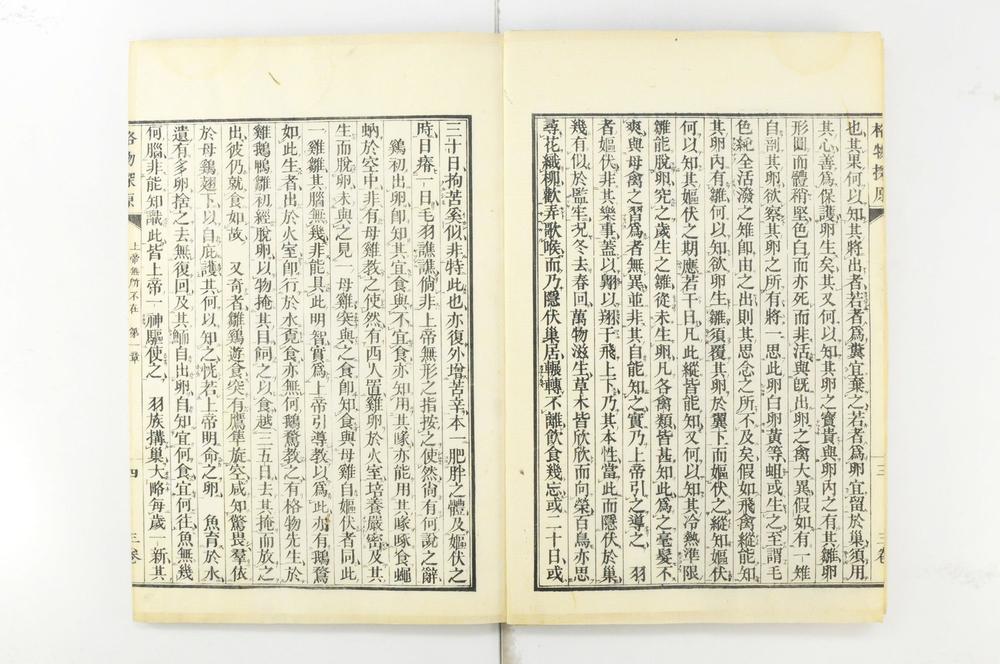 格物探原
三
三卷
也、其果何以知其將出者、若者爲糞宜棄之、若者爲卵、宜留於巢、須用
其心善爲保護、卵生矣、其又何以知其卵之寶貴、與卵內之有其雛、卵
形圓而體稍堅、色白而亦死而非活、與旣出卵之禽大異、假如有一雉
自剖其卵、欲察其卵之所有、將一思此卵白卵黃等蛆或生之、至謂毛
色純全活潑之雉、卽由之出、則其思念之所不及矣、假如飛禽縱能知
其卵內有雛、何以知欲卵生雛、須覆其卵於翼下而嫗伏之、縱知嫗伏
何以知其嫗伏之期、應若干日、凡此縱皆能知、又何以知其冷熱準限、
雛能脫卵、究之歲生之雛、從未生卵、凡各禽類、皆甚知此、爲之毫髮不
爽、與母禽之習爲者無異、並非其自能知之、實乃上帝引之導之、 羽
者嫗伏、非其樂事、蓋以翱以翔、于飛上下、乃其本性、當此而隱伏於巢、
幾有似於監牢、况冬去春回、萬物滋生、草木皆欣欣而向榮、百鳥亦思
尋花織柳、歡弄歌喉、而乃隱伏巢居、輾轉不離、飲食幾忘、或二十日、或
三十日、拘苦奚似、非特此也、亦復外增苦辛、本一肥胖之體、及嫗伏之
時、日瘠一日、毛羽譙譙、倘非上帝無形之指按之使然、尙有何說之辭、
 鷄初出卵、卽知其宜食與不宜食、亦知用其啄、亦能用其啄、啄食蠅
蚋於空中、非有母雞教之使然、有西人置雞卵於火室、培養嚴密、及其
生而脫卵、未與之見一母雞、突與之食、卽知食、與母雞自嫗伏者同、此
一雞雛、其腦無幾、非能具此明智、實爲上帝引導教以爲此、亦有鵝鶩
如此生者、出於火室、卽行於水、覓食亦無何鵝鶩教之、有格物先生、於
雞鵝鴨雛初經脫卵、以物掩其目飼之以食、越三五日、去其掩而放之
出、彼仍就食如故、 又奇者、雛鷄遊食、突有鷹隼旋空、咸知驚畏、羣依
於母鷄翅下以自庇護、其何以知之、恍若上帝明命之卵、 魚育於水、
遺有多卵、捨之去、無復回、及其鮞自出卵、自知宜何食、宜何往、魚無幾
何腦、非能知識此、皆上帝一神驅使之、 羽族搆巢、大略每歲一新、其
格物探原
上帝無所不在 第一章
四
三卷